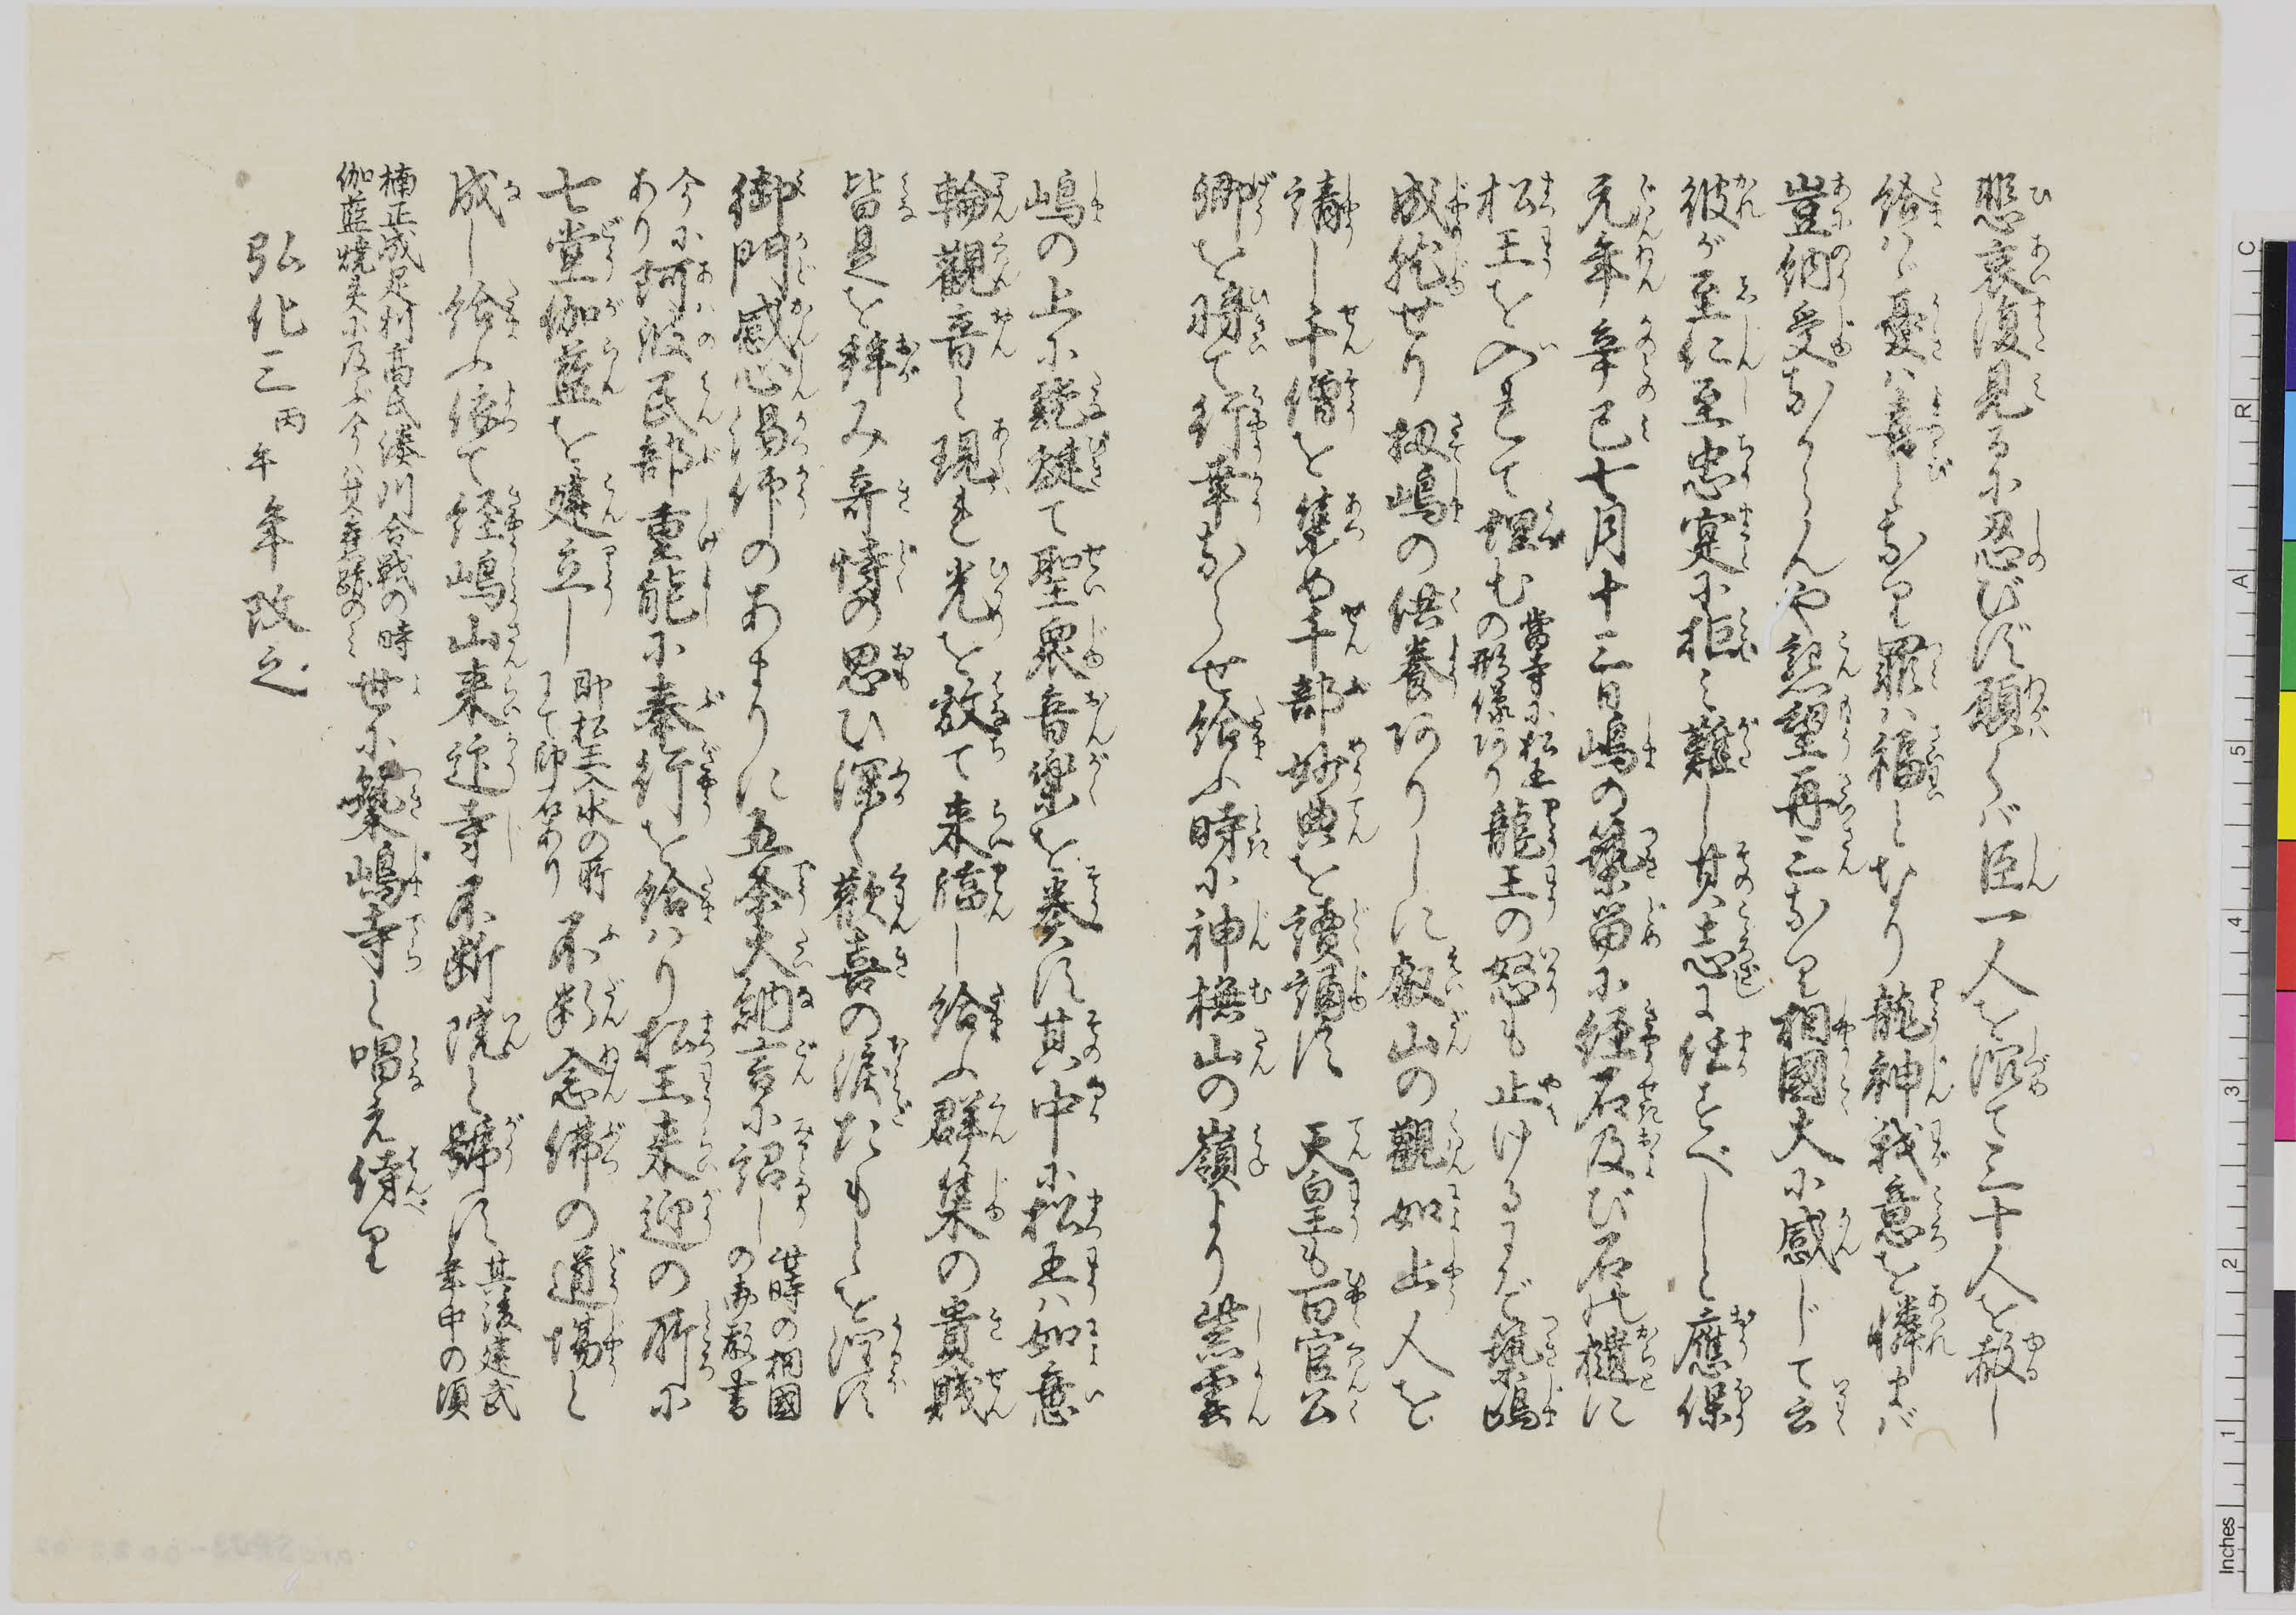 悲哀復見るに忍びず願くバ臣一人を沉て三十人を赦し
給ハヾ憂ハ喜となり罪ハ福となり龍神我意を憐まバ
豈納受なからんや懇望再三なり相國大に感じて云
彼が至仁至忠寔に拒ミ難し其志に任すべしと應保
元年辛巳七月十三日嶋の築留に経石及び石の櫃に
松王を入れて埋む
當寺に松王
の形像阿り
龍王の怒も止けるまゞ築嶋
成就せり扨嶋の供養阿りしに叡山の觀如上人を
請し千僧を集め千部妙典を讀誦す　天皇も百官公
卿を将て行幸ならせ給ふ時に神撫山の嶺より紫雲
嶋の上に靉靆て聖衆音楽を奏す其中に松王ハ如意
輪觀音と現れ光を放て来臨し給ふ群集の貴賎
皆是を拜み奇特の思ひ深く歡喜の涙たもとを湿す
御門感心渇仰のあまりに五条大納言に詔し
此時の相國
の御教書
今に
あり
阿波民部重能に奉行を給ハり松王来迎の所に
七堂伽藍を建立し
即松王入水の所
にて印第あり
不断念佛の道場と
成し給ふ依て経嶋山来迎寺不断院と號す
其後建武
年中の頃
楠正成足利高氏湊川合戦の時
伽藍焼失に及ぶ今ハ其舊跡のミ
世に築嶋寺と唱え侍り
弘化三丙午年改之